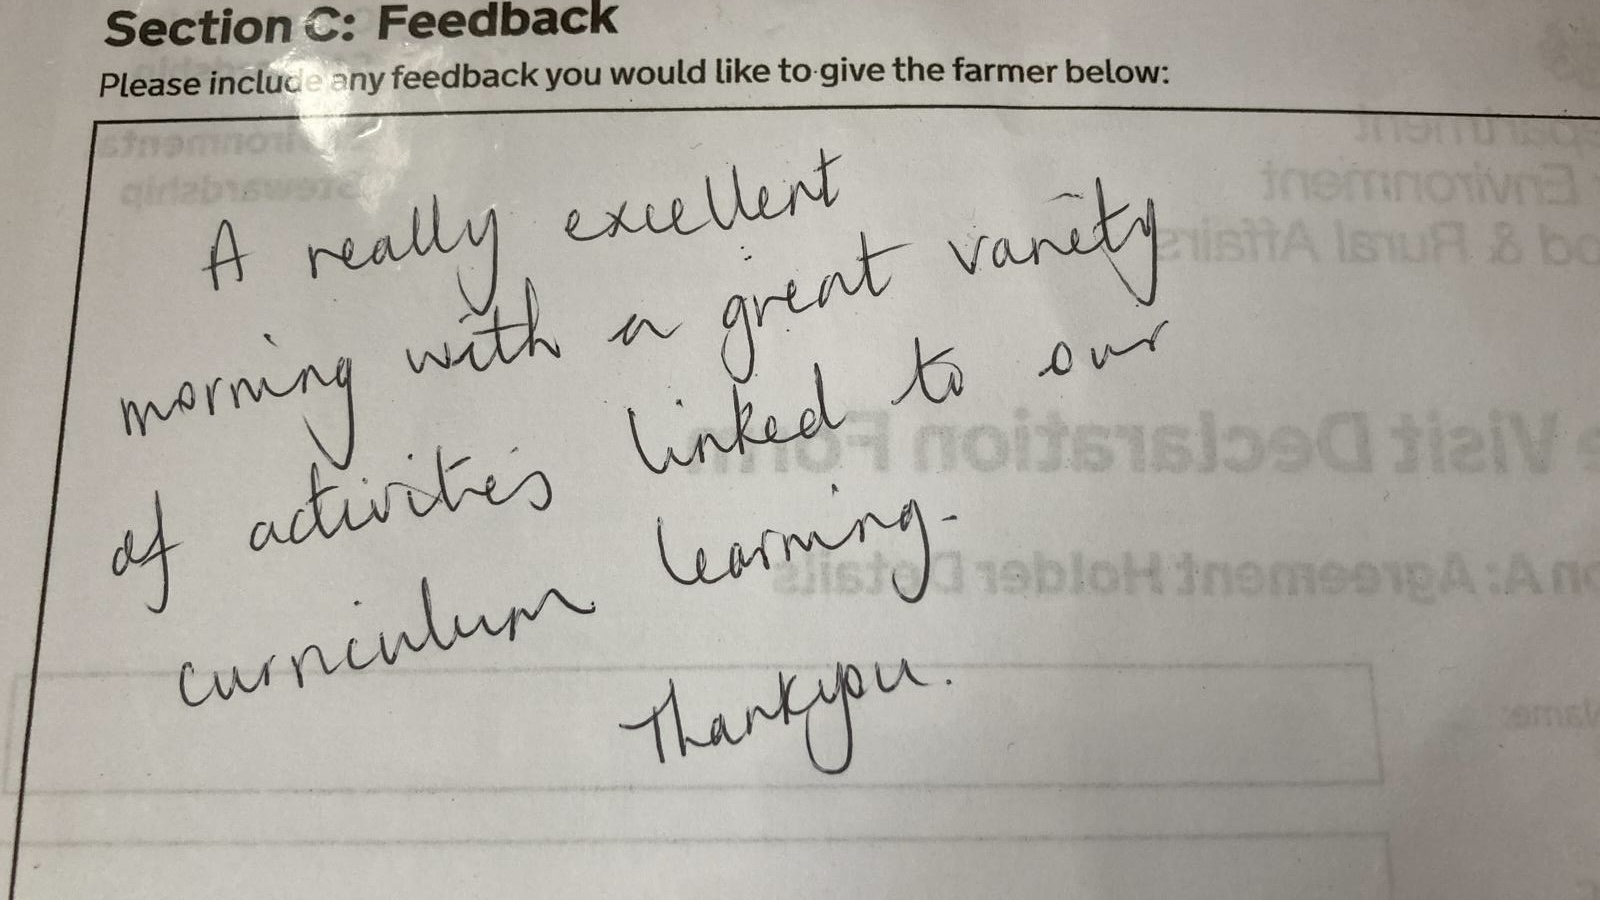 Section C: Feedback
Please include any feedback you would like to give the farmer below:
A really excellent
morning with a great variety
of activities linked to our
curriculum learning.
Thankyou.